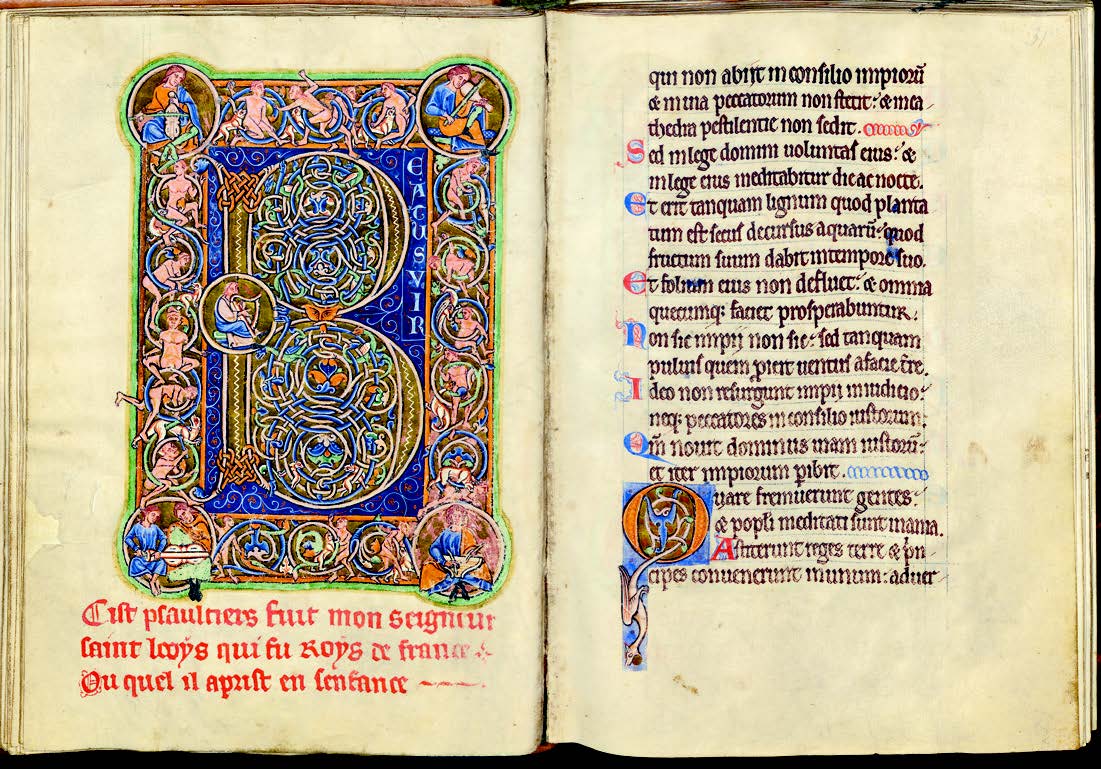 BEATUS VIR
Cist psaultiers fuit mon seigneur
saint looys qui fu Roys de france
Ou quel il aprist en senfance
qui non abiit in consilio impioru᷈
& in uia peccatorum non stetit: & in ca
thedra pestilentie non sedit.
Sed in lege domini uoluntas eius: &
in lege eius meditabitur die ac nocte.
Et erit tanquam lignum quod planta
tum est secus decursus aquaru᷈: quod
fructum suum dabit in tempore suo.
Et folium eius non defluet: & omnia
quecumq; faciet prosperabuntur.
Non sic impii non sic: sed tanquam
puluis quem p̱icit uentus a facie t̄re.
Ideo non resurgunt impii in iudicio:
neq; peccatores in consilio iustorum:
Qm̄ nouit dominus uiam iustoru᷈:
et iter impiorum p̱ibit.
Quare fremuerunt gentes:
& pop̄li meditati sunt inania.
Astiterunt reges terre & p̄n
cipes conuenerunt in unum: aduer